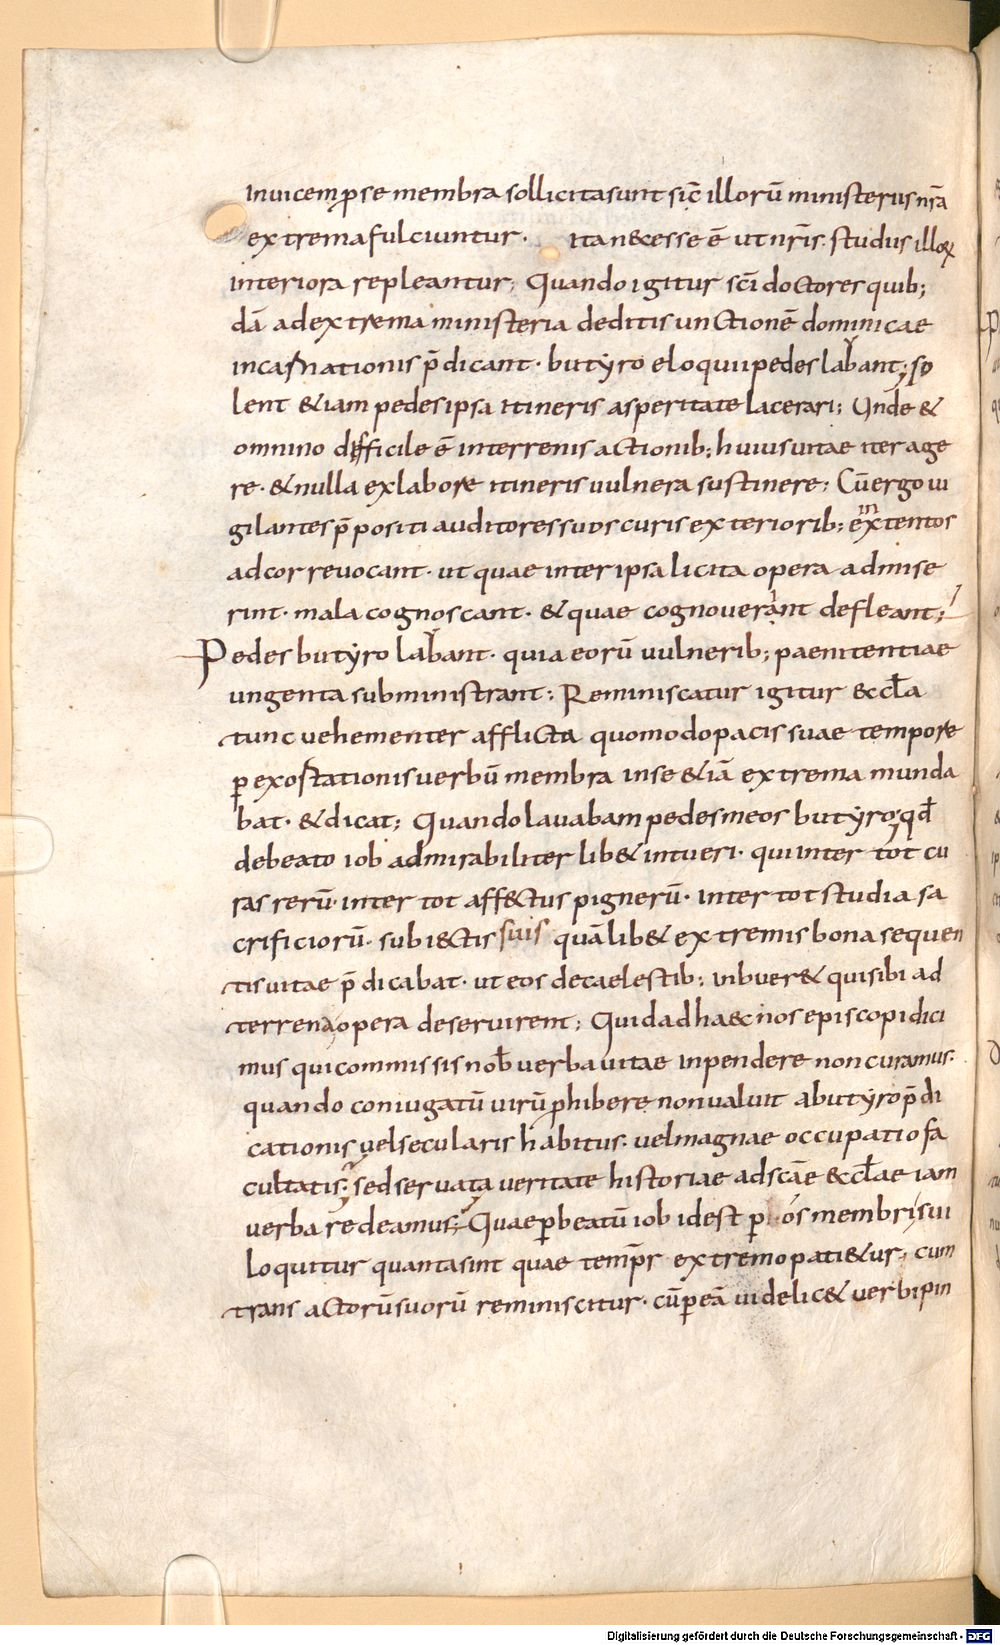 inuicem ꝑ se membra sollicita sunt sic̄ illorū ministeriis nr̄a
extrema fulciuntur· ita n&cesse ē ut nr̄is studiis illoꝝ
interiora repleantur; Quando igitur sc̄i doctores quib;
dā ad extrema ministeria deditis unctionē dominicae
incarnationis p̄dicant· butyro eloquii pedes labant; so
lent &iam pedes ipsa itineris asperitate lacerari; Unde &
omnino difficile ē in terrenis actionib; huius uitae iter age
re· & nulla ex labore itineris uulnera sustinere; Cū ergo ui
gilantes p̄positi auditores suos curis exteriorib; extentos
ad cor reuocant· ut quae inter ipsa licita opera admise
rint· mala cognoscant· & quae cognouerant defleant;
Pedes butyro labant· quia eorū uulnerib; paenitentiae
ungenta subministrant; Reminiscatur igitur &cl̄a
tunc uehementer afflicta quomodo pacis suae tempore
ꝑ exortationis uerbū membra in se &iā extrema munda
bat· & dicat; Quando lauabam pedes meos butyro; qd̄
de beato iob admirabiliter lib& intueri· qui inter tot cu
ras rerū· inter tot aff&ctus pignerū· inter tot studia sa
crificiorū· subi&ctis suis quālib& extremis bona sequen
tis uitae p̄dicabat· ut eos de caelestib; inbuer& qui sibi ad
terrena opera deseruirent; Quid ad ha&c nos episcopi dici
mus qui commissis nob̄ uerba uitae inpendere non curamus·
quando coniugatū uirū ꝓhibere non ualuit a butyro p̄di
cationis uel secularis habitus· uel magnae occupatio fa
cultatis; sed seruata ueritate historiae ad sc̄ae &cl̄ae iam
uerba redeamus; Quae ꝑ beatū iob id est ꝑ os membri sui
loquitur quanta sint quae temp̄r extremo pati&ur; cum
transactorū suorū reminiscitur· cū ꝑ eā uidelic& uerbi pin